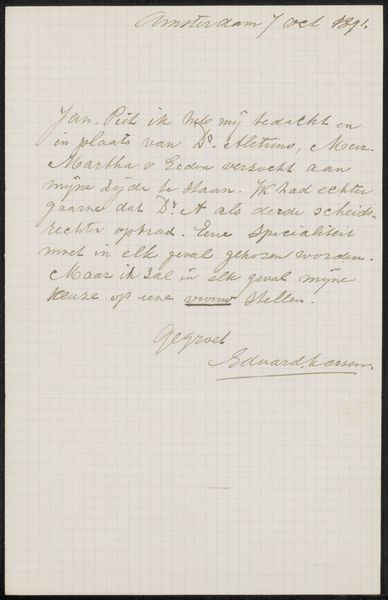 Amsterdam 7 oct 1891.
Jan. Piet ik heb mij bedacht en
in plaats van Dr. Aletrino, Mevr.
Martha v Eeden verzocht aan
mijne zijde te staan. Ik had echter
gaarne dat Dr A als derde scheids-
rechter optrad. Eene specialiteit
moet in elk geval gekozen worden.
Maar ik zal in elk geval mijne
keuze op eene vrouw stellen.
Gegroet
Eduard